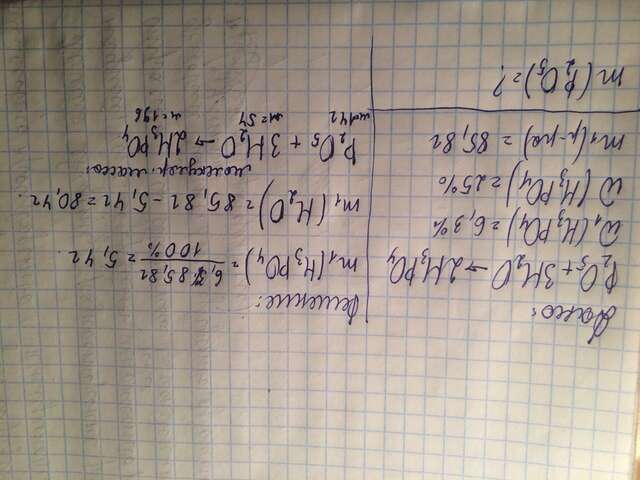 Дано:
P₂O₅ + 3H₂O → 2H₃PO₄
ω₁(H₃PO₄) = 6,3%
ω(H₃PO₄) = 25%
m₁(р-ра) = 85,8г
m(P₂O₅) = ?
Решение:
m₁(H₃PO₄) = 6,3·85,8г / 100% = 5,4г
m₁(H₂O) = 85,8г - 5,4г = 80,4г
молекуляр. масса:
P₂O₅ + 3H₂O → 2H₃PO₄
m=142 m=54 m=196